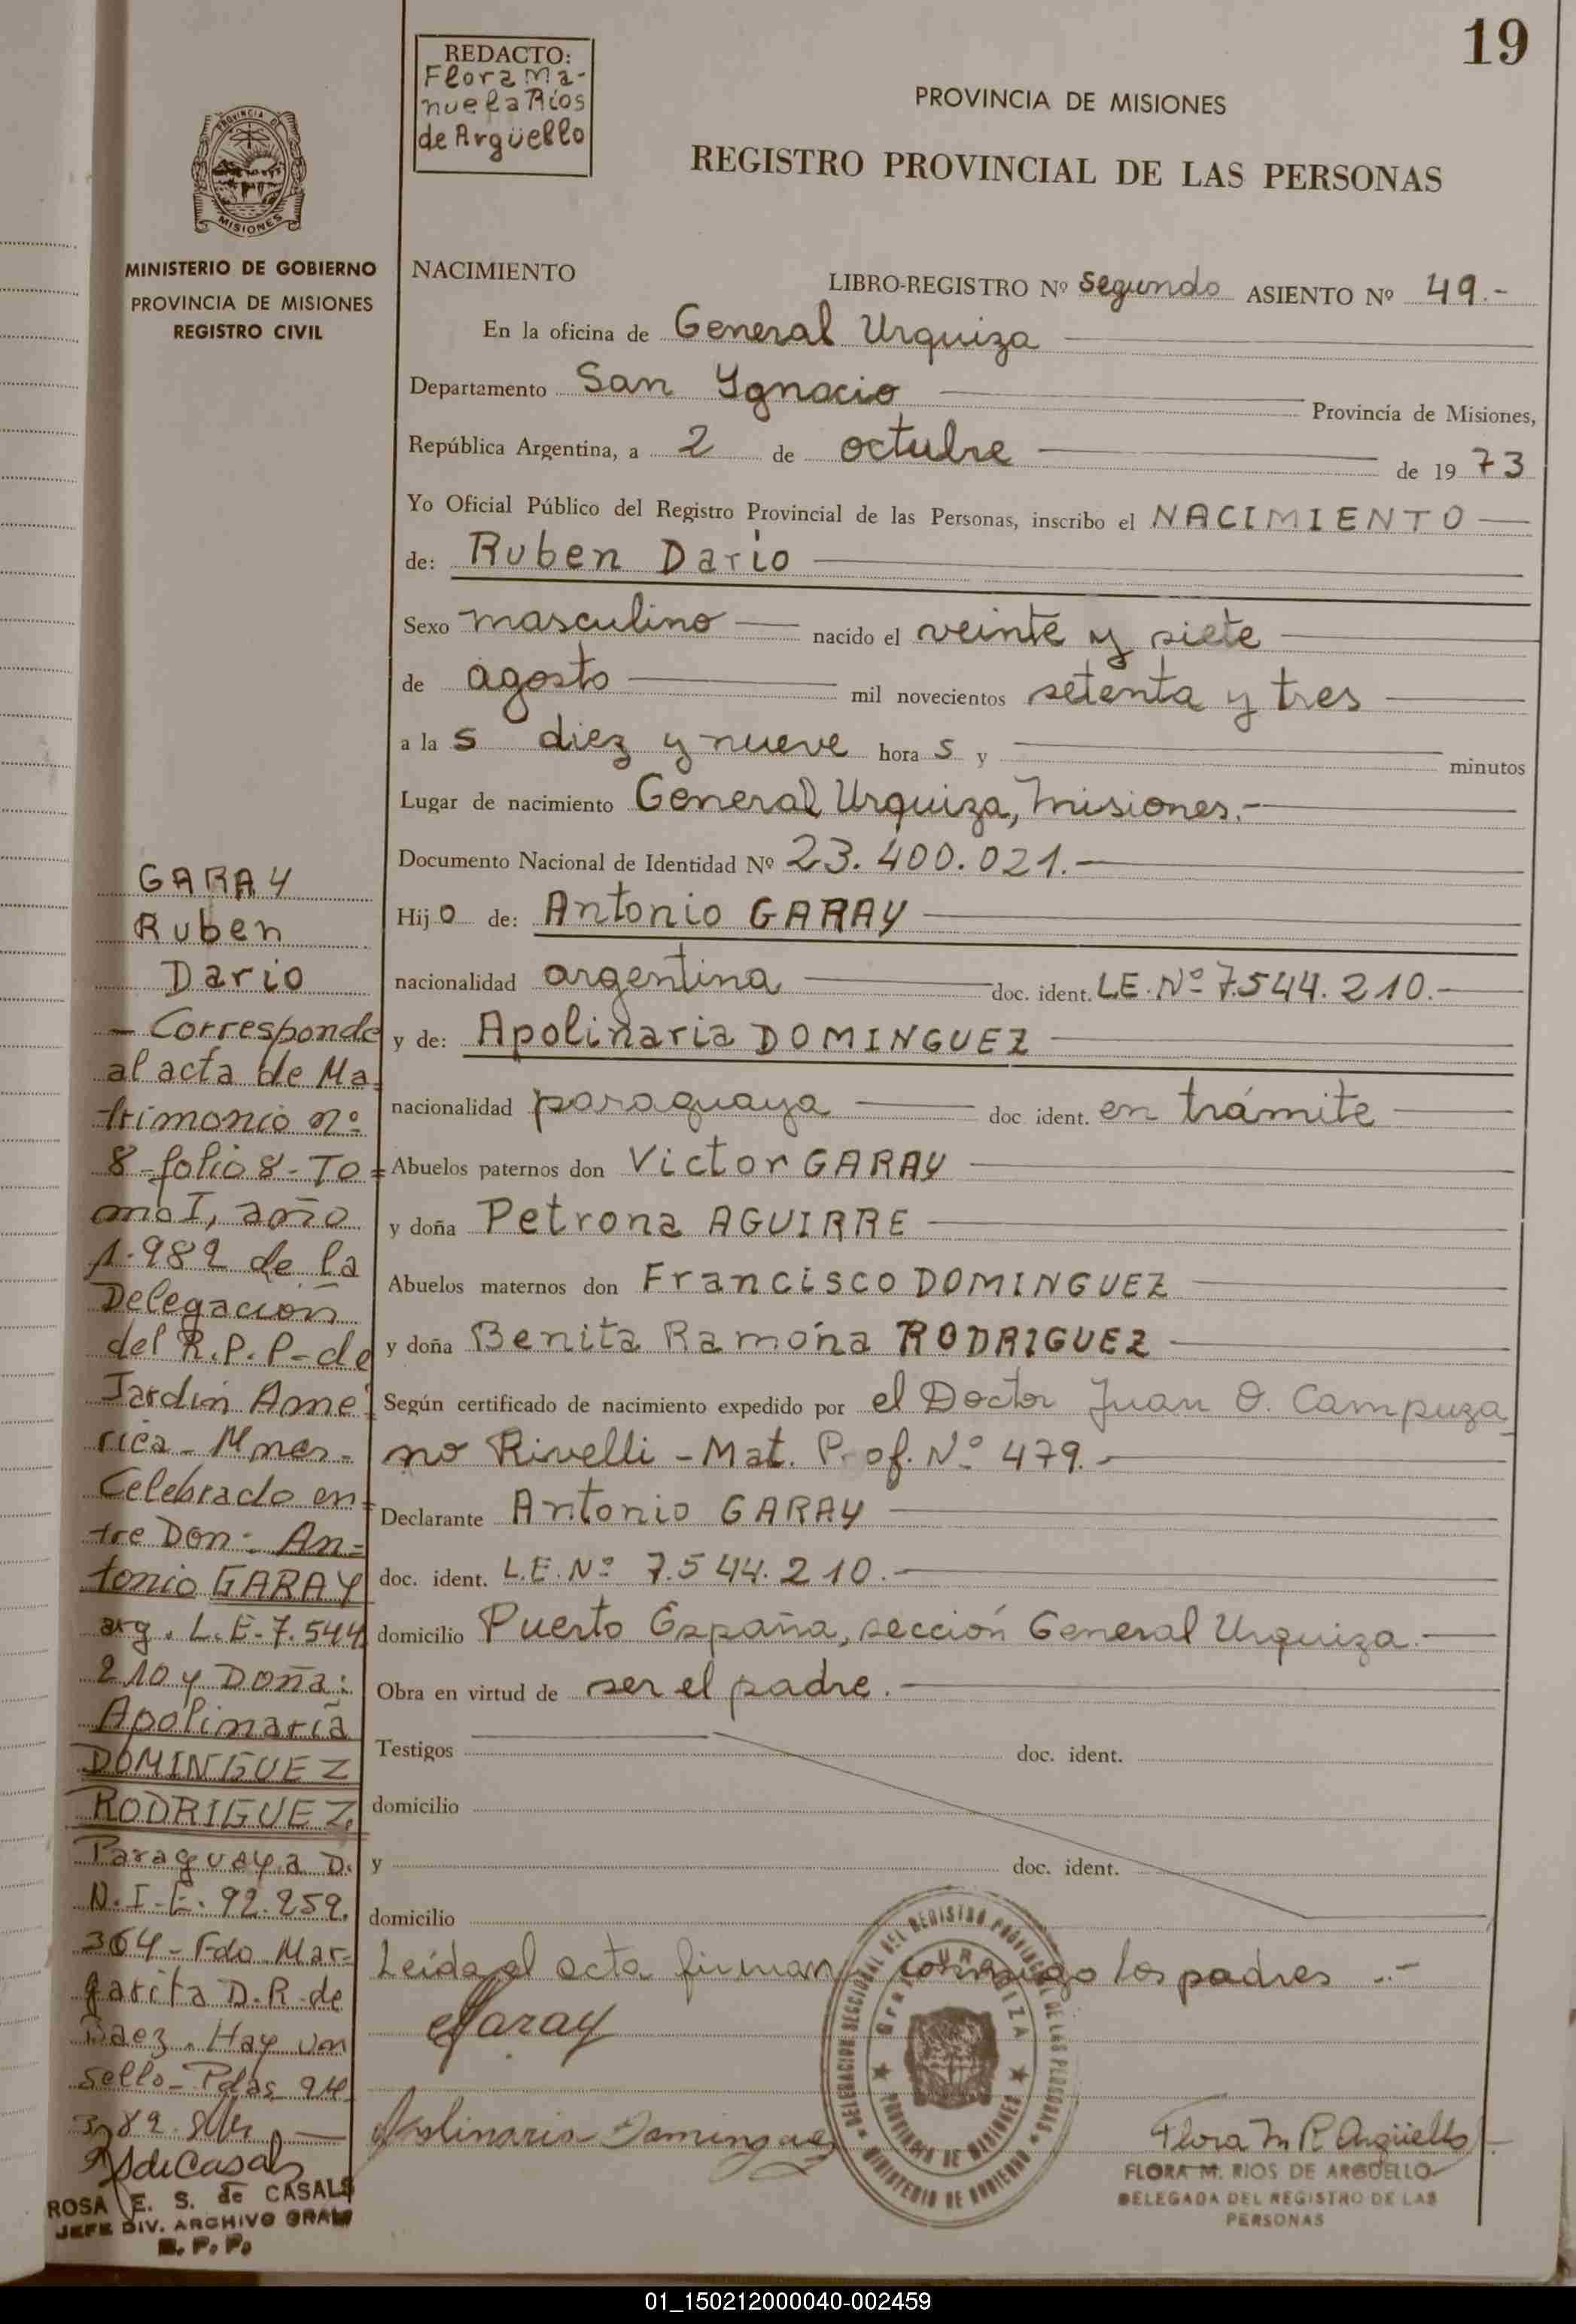 19
REDACTO:
Flora Ma-
nuela Ríos
de Argüello
PROVINCIA DE MISIONES
REGISTRO PROVINCIAL DE LAS PERSONAS
PROVINCIA DE
MISIONES
MINISTERIO DE GOBIERNO
PROVINCIA DE MISIONES
REGISTRO CIVIL
NACIMIENTO
LIBRO-REGISTRO Nº Segundo ASIENTO Nº 49.-
En la oficina de General Urquiza
Departamento San Ygnacio Provincia de Misiones,
República Argentina, a 2 de octubre de 1973
Yo Oficial Público del Registro Provincial de las Personas, inscribo el NACIMIENTO
de: Ruben Dario
Sexo masculino nacido el veinte y siete
de agosto mil novecientos setenta y tres
a la s diez y nueve hora s y minutos
Lugar de nacimiento General Urquiza, Misiones.-
Documento Nacional de Identidad Nº 23.400.021.-
Hijo de: Antonio GARAY
nacionalidad argentina doc. ident. L.E. Nº 7.544.210.-
y de: Apolinaria DOMINGUEZ
nacionalidad paraguaya doc ident. en trámite
Abuelos paternos don Victor GARAY
y doña Petrona AGUIRRE
Abuelos maternos don Francisco DOMINGUEZ
y doña Benita Ramona RODRIGUEZ
Según certificado de nacimiento expedido por el Doctor Juan O. Campuza
no Rivelli - Mat. Prof. Nº 479.-
Declarante Antonio GARAY
doc. ident. L.E. Nº 7.544.210.-
domicilio Puerto España, sección General Urquiza.-
Obra en virtud de ser el padre.-
Testigos doc. ident.
domicilio
y doc. ident.
domicilio
Leída el acta firman conmigo los padres .-
Garay
Apolinaria Dominguez
Flora M R Argüello
FLORA M. RIOS DE ARGÜELLO
DELEGADA DEL REGISTRO DE LAS
PERSONAS
DELEGACION SECCIONAL DEL REGISTRO PROVINCIAL DE LAS PERSONAS
MINISTERIO DE GOBIERNO
Gral. URQUIZA
PROVINCIA DE MISIONES
GARAY
Ruben
Dario
- Corresponde
al acta de Ma=
trimonio nº
8-folio 8-To=
mo I, año
1.982 de la
Delegación
del R.P.P-de
Jardín Amé=
rica-Mnes-
Celebrado en=
tre Don: An=
tonio GARAY
arg. L.E-7.544
210 y Doña:
Apolinaria
DOMINGUEZ
RODRIGUEZ,
Paraguaya D.
N.I-E. 92.259.
364-Fdo-Mar=
garita D.R-de
Baez. Hay un
sello-Pdas 24
ROSA E. S. de CASALS
JEFE DIV. ARCHIVO GRAL
R. P. P.
01_150212000040-002459